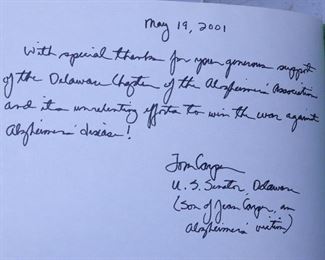 May 19, 2001
With special thanks for your generous support
of the Delaware Chapter of the Alzheimers' Association
and its unrelenting efforts to win the war against
Alzheimers' disease!
Tom Carper
U.S. Senator, Delaware
(Son of Jean Carper, an
Alzheimers' victim)